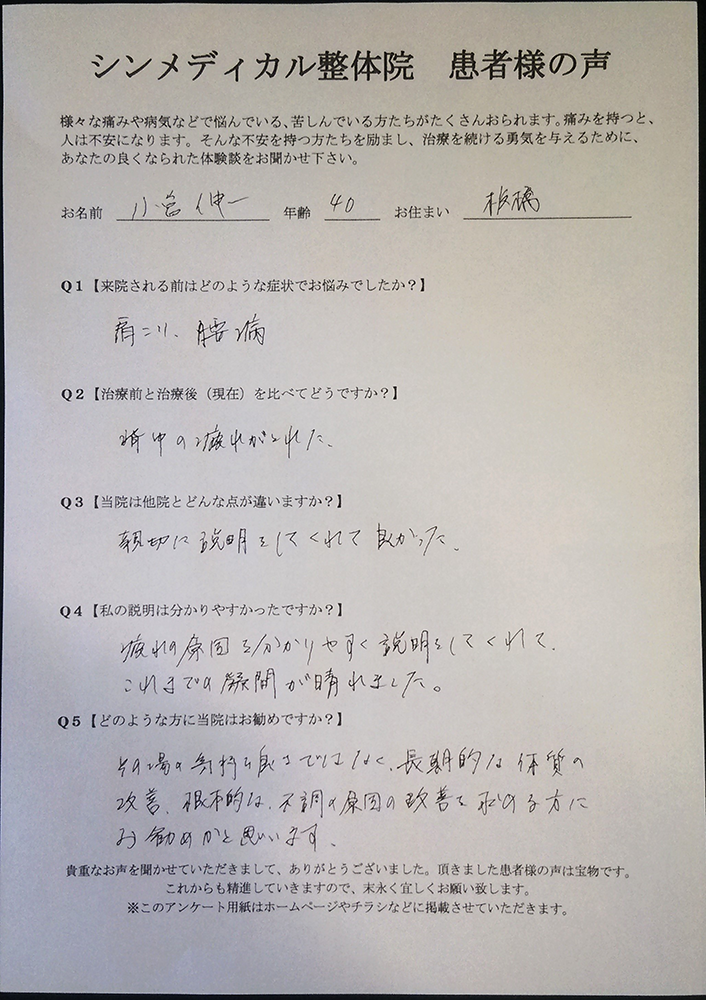 シンメディカル整体院　患者様の声
様々な痛みや病気などで悩んでいる、苦しんでいる方たちがたくさんおられます。痛みを持つと、
人は不安になります。そんな不安を持つ方たちを励まし、治療を続ける勇気を与えるために、
あなたの良くなられた体験談をお聞かせ下さい。
お名前 小宮 伸一 年齢 40 お住まい 板橋
Q1【来院される前はどのような症状でお悩みでしたか？】
肩こり、腰痛
Q2【治療前と治療後（現在）を比べてどうですか？】
背中の疲れがとれた、
Q3【当院は他院とどんな点が違いますか？】
親切に説明をしてくれて良かった、
Q4【私の説明は分かりやすかったですか？】
疲れの原因を分かりやすく説明をしてくれて、
これまでの疑問が晴れました。
Q5【どのような方に当院はお勧めですか？】
その場の気持ち良さではなく、長期的な体質の
改善、根本的な、不調の原因の改善を求める方に
お勧めかと思います、
貴重なお声を聞かせていただきまして、ありがとうございました。頂きました患者様の声は宝物です。
これからも精進していきますので、末永く宜しくお願い致します。
※このアンケート用紙はホームページやチラシなどに掲載させていただきます。